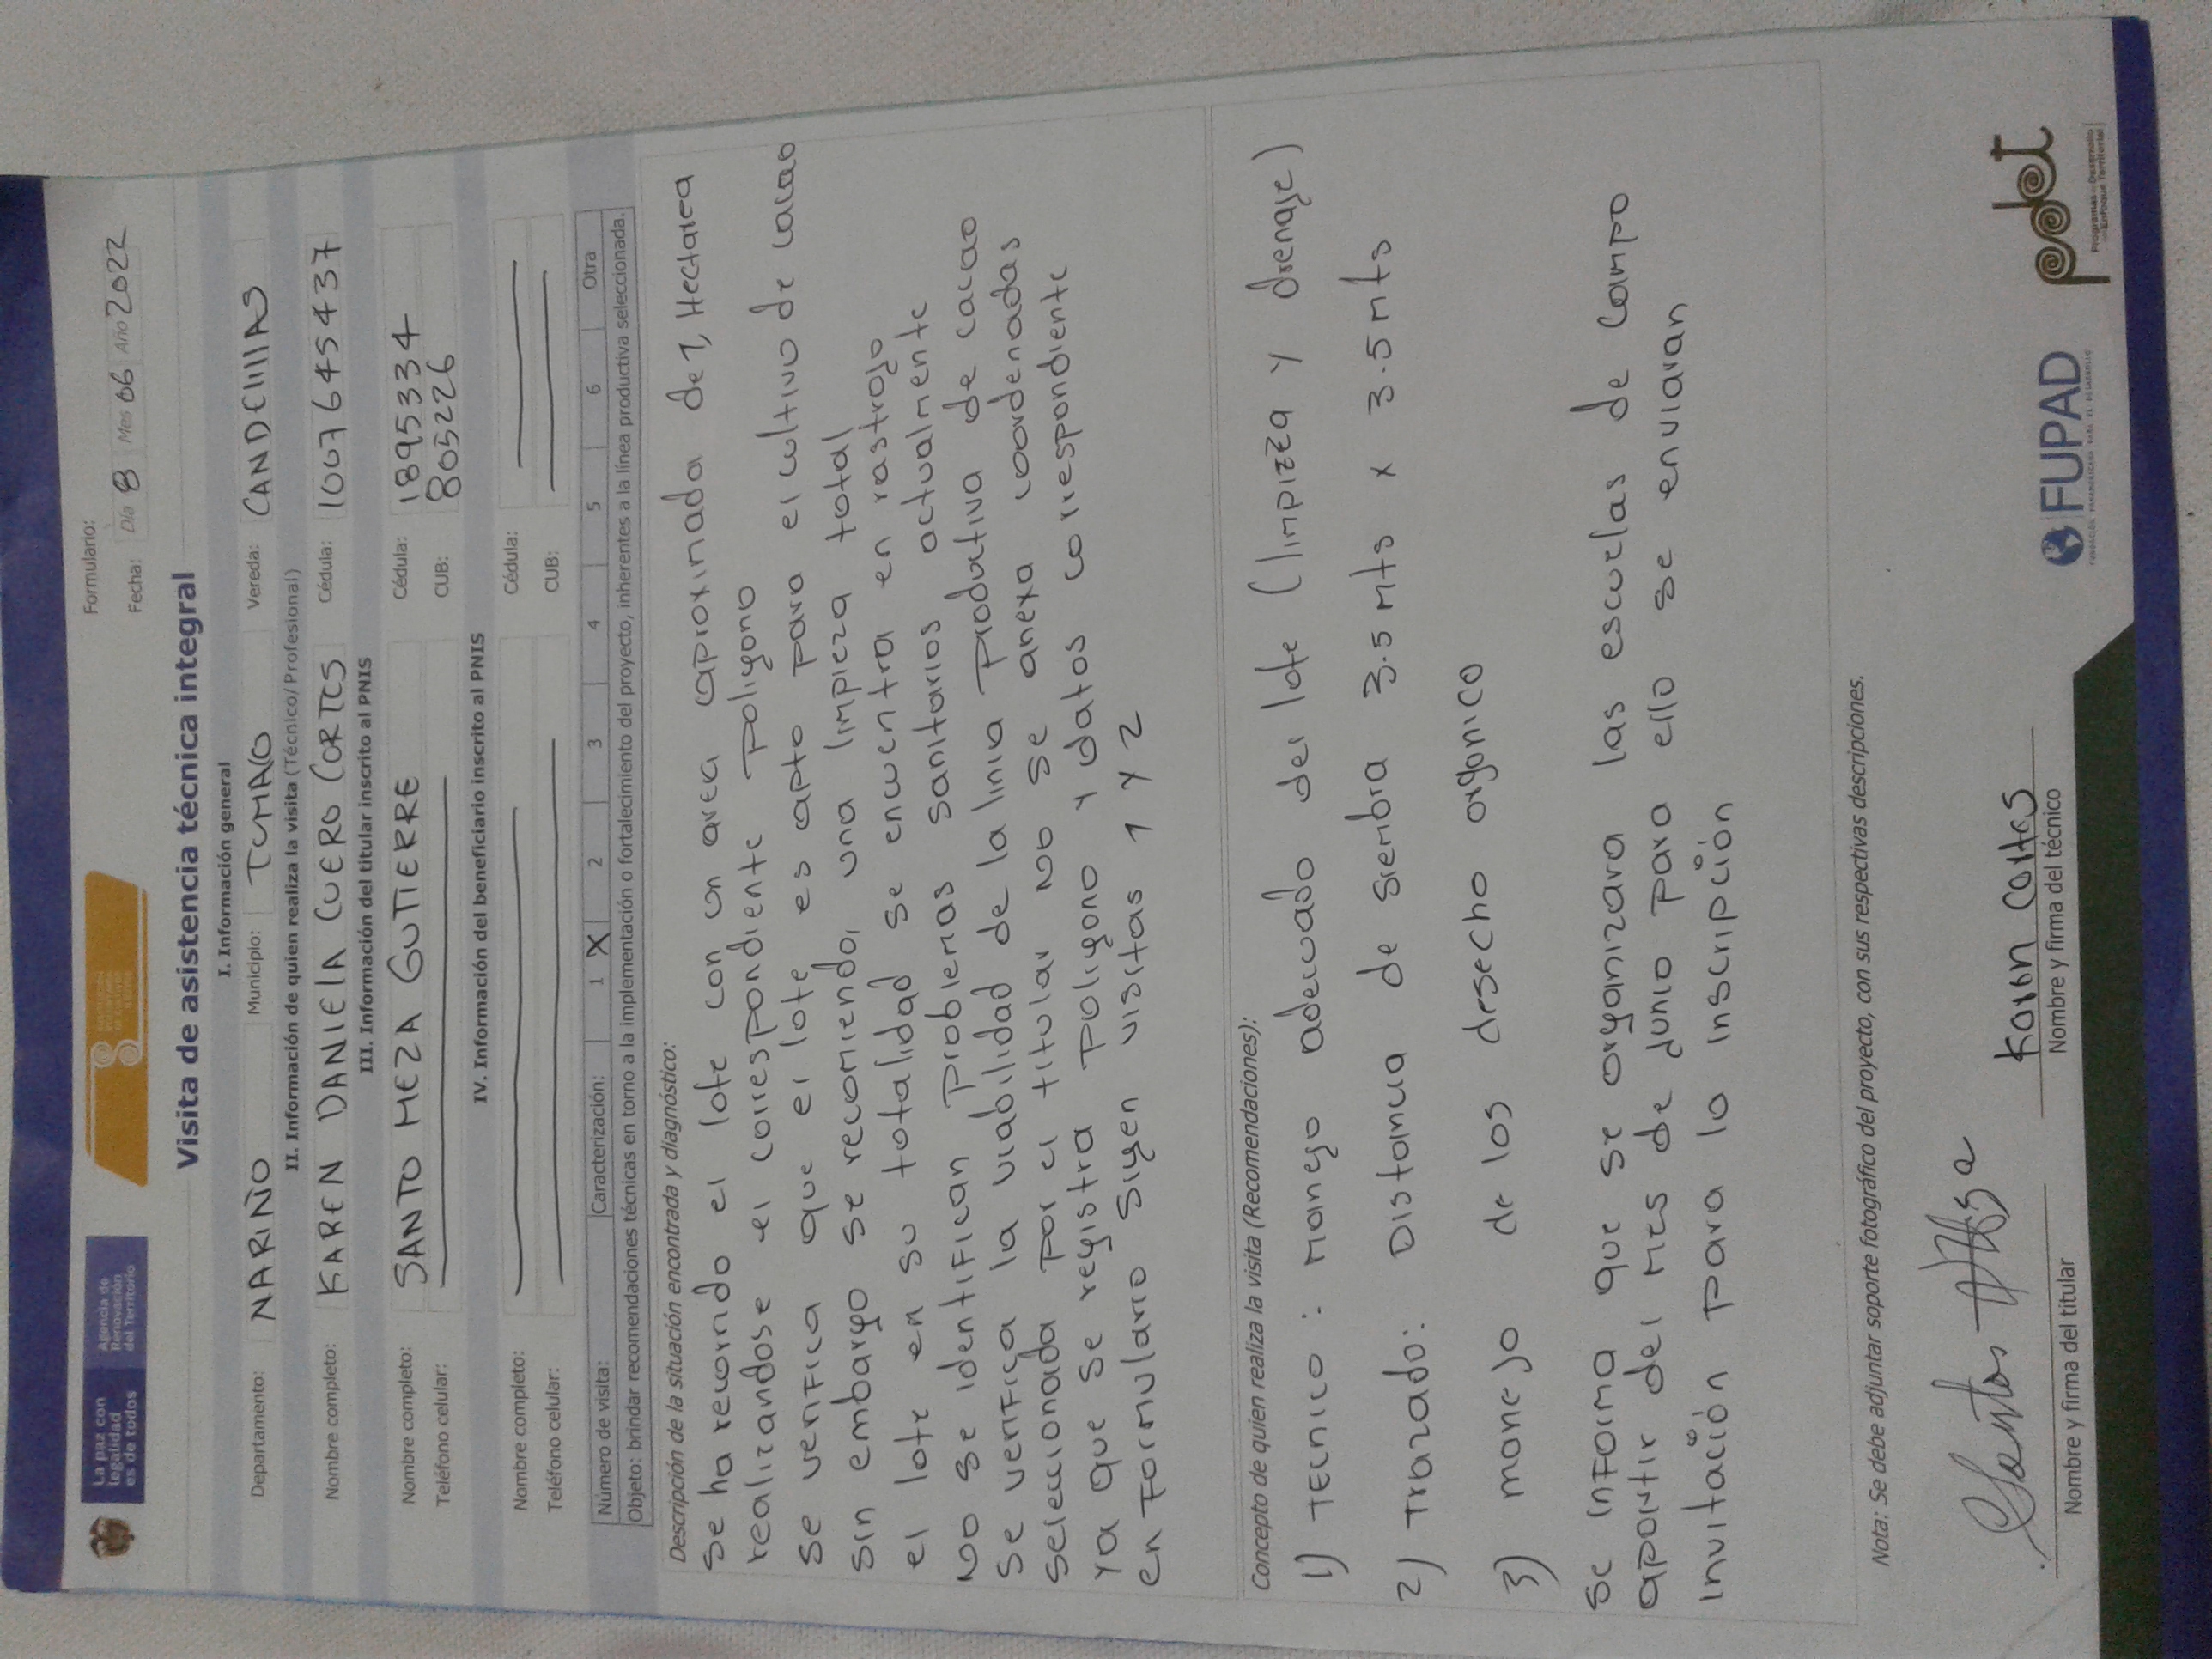 La paz con
legalidad
es de todos
Agencia de
Renovación
del Territorio
Formulario:
Fecha: Día 8 Mes 06 Año 2022
Visita de asistencia técnica integral
I. Información general
Departamento: NARIÑO Municipio: TUMACO Vereda: CANDElIlAS
II. Información de quien realiza la visita (Técnico/ Profesional)
Nombre completo: KAREN DANIElA CUERO CORTES Cédula: 1007645437
III. Información del titular inscrito al PNIS
Nombre completo: SANTO MEZA GUTIERRE Cédula: 1895334
Teléfono celular: CUB: 805226
IV. Información del beneficiario inscrito al PNIS
Nombre completo: Cédula:
Teléfono celular: CUB:
Número de visita: Caracterización: 1 X 2 3 4 5 6 Otra
Objeto: brindar recomendaciones técnicas en torno a la implementación o fortalecimiento del proyecto, inherentes a la línea productiva seleccionada.
Descripción de la situación encontrada y diagnóstico:
Se ha recorrido el lote con un area aproximada de 1, Hectarea
realizandose el correspondiente poligono
Se verifica que el lote es apto para el cultivo de cacao
sin embargo se recomienda, una limpieza total
el lote en su totalidad se encuentra en rastrojo
No se identifican problemas sanitarios actualmente
Se verifica la viabilidad de la linia produtiva de cacao
seleccionada por el titular No se anexa coordenadas
ya que se registra poligono y datos correspondiente
en Formulario Sigen visitas 1 y 2
Concepto de quien realiza la visita (Recomendaciones):
1) TECnico : manejo adecuado del lote (limpieza y drenaje)
2) Trazado: Distancia de siembra 3.5 mts x 3.5 mts
3) manejo de los desecho organico
Se informa que se organizara las escuelas de campo
apartir del mes de Junio para ello se enviaran
invitación para la inscripción
Nota: Se debe adjuntar soporte fotográfico del proyecto, con sus respectivas descripciones.
Santos Meza
Karen Cortes
Nombre y firma del titular
Nombre y firma del técnico
FUPAD
pdet
Programas de Desarrollo
con Enfoque Territorial